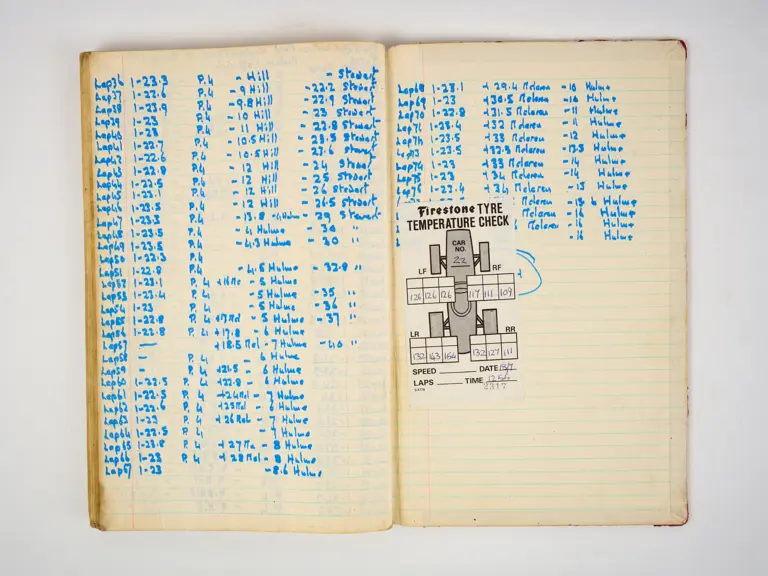 Lap36 1-23.3 P.4 - Hill - Stewart
Lap37 1-22.6 P.4 - 9 Hill - 22.2 Stewart
Lap38 1-23.9 P.4 - 9.8 Hill - 22.9 Stewart
Lap39 1-23 P.4 - 10 Hill - 23 Stewart
Lap40 1-23 P.4 - 11 Hill - 22.8 Stewart
Lap41 1-22.7 P.4 - 10.5 Hill - 23.5 Stewart
Lap42 1-22.6 P.4 - 10.5 Hill - 27.6 Stewart
Lap43 1-22.8 P.4 - 12 Hill - 24 Stewart
Lap44 1-22.5 P.4 - 12 Hill - 25 Stewart
Lap45 1-23.1 P.4 - 12 Hill - 26 Stewart
Lap46 1-23.5 P.4 - 12 Hill - 26.5 Stewart
Lap47 1-23.3 P.4 - 13.8 - 4 Hulme - 29 Stewart
Lap48 1-23.5 P.4 - 4 Hulme - 30 "
Lap49 1-23.5 P.4 - 4.3 Hulme - 30 "
Lap50 1-22.5 P.4
Lap51 1-22.8 P.4 - 4.5 Hulme - 32.8 "
Lap52 1-23.1 P.4 - 5 Hulme
Lap53 1-23.4 P.4 - 5 Hulme - 35 "
Lap54 1-23 P.4 - 5 Hulme - 36 "
Lap55 1-22.8 P.4 - 5 Hulme - 37 "
Lap56 1-22.8 P.4 +17.8 - 6 Hulme
Lap57 — +18.5 Mcl - 7 Hulme - 40 "
Lap58 - P.4 - 6 Hulme
Lap59 - P.4 +21.5 - 6 Hulme
Lap60 1-22.5 P.4 +22.8 - 6 Hulme
Lap61 1-22.5 P.4 +24 Mcl - 7 Hulme
Lap62 1-22.6 P.4 +25 Mcl - 6 Hulme
Lap63 1-23 P.4 +26 Mcl - 7 Hulme
Lap64 1-22.5 P.4 - 7 Hulme
Lap65 1-23.8 P.4 +27 Mc - 8 Hulme
Lap66 1-23 P.4 +28 Mcl - 8 Hulme
Lap67 1-23 - 8.6 Hulme
Lap68 1-23.1 +29.4 Mclaren - 10 Hulme
Lap69 1-23 +30.5 Mclaren - 10 Hulme
Lap70 1-22.8 +31.5 Mclaren - 11 Hulme
Lap71 1-23.4 +32 Mclaren - 11 Hulme
Lap72 1-23.5 +33 Mclaren - 12 Hulme
Lap73 1-23.5 +32.3 Mclaren - 13.5 Hulme
Lap74 1-23 +33 Mclaren - 14 Hulme
Lap75 1-23 +34 Mclaren - 14 Hulme
Lap76 1-22.4 +34 Mclaren - 15 Hulme
Mclaren - 15.6 Hulme
Mclaren - 16 Hulme
Mclaren - 16 Hulme
- 16 Hulme
Firestone TYRE
TEMPERATURE CHECK
CAR
NO.
22
LF RF
126 126 126 117 111 109
LR RR
132 143 154 132 127 111
SPEED DATE 13/7
LAPS TIME 12.54
2317